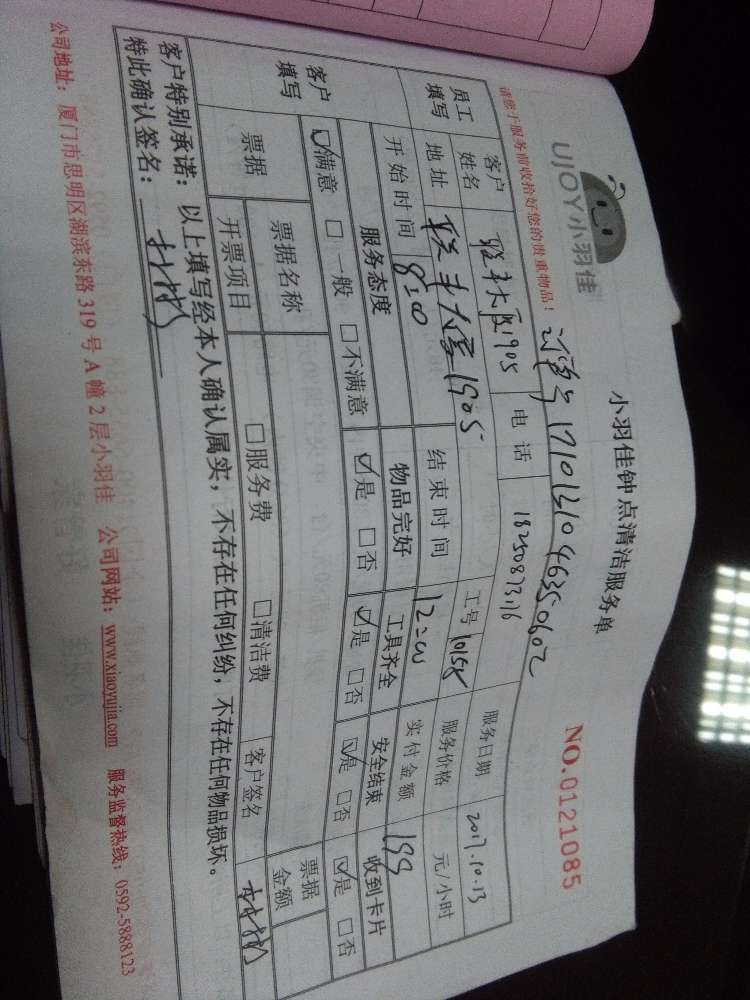 UJOY小羽佳
小羽佳钟点清洁服务单
NO.0121085
请您于服务前收拾好您的贵重物品!
171013104635060
员工填写 客户姓名 联丰大厦1905 电话 18250873116 工号 10158 服务日期 2017.10.13
地址 联丰大厦1905 服务价格 元/小时
开始时间 8:00 结束时间 12:00 实付金额 199
客户填写 服务态度 物品完好 工具齐全 安全结束 收到卡片
☑满意 □一般 □不满意 ☑是 □否 ☑是 □否 ☑是 □否 ☑是 □否
票据 票据名称 票据金额
开票项目 □服务费 □清洁费 客户签名
客户特别承诺：以上填写经本人确认属实，不存在任何纠纷，不存在任何物品损坏。
特此确认签名：
公司地址：厦门市思明区湖滨东路319号A幢2层小羽佳 公司网站：www.xiaoyujia.com 服务监督热线：0592-5888123